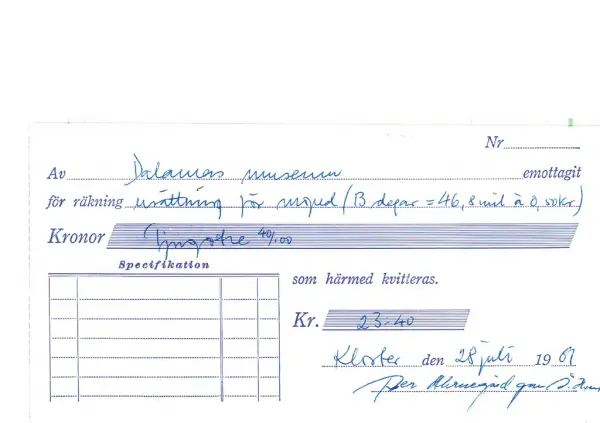 Nr
Av Dalarnas museum emottagit
för räkning ersättning för moped (13 dagar = 46,8 mil à 0,50 kr)
Kronor Tjugotre 40/100
Specifikation
som härmed kvitteras.
Kr. 23:40
Kloster den 28 juli 1961
Per